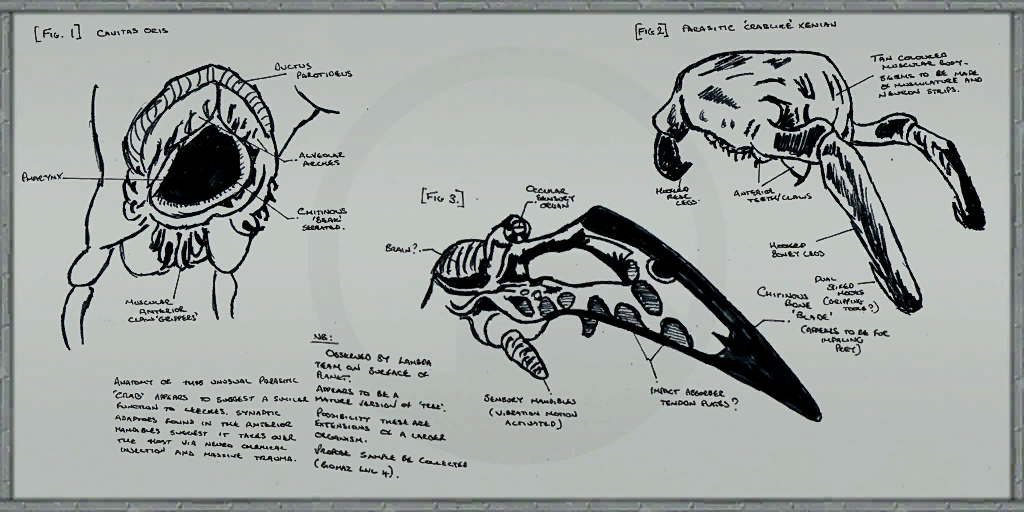 [FIG. 1] CAVITAS ORIS
DUCTUS
PAROTIDEUS
ALVEOLAR
ARCHES
PHARYNX
CHITINOUS
'BEAK'
SERRATED.
MUSCULAR
ANTERIOR
CLAW 'GRIPPERS'
ANATOMY OF THIS UNUSUAL PARASITIC
'CRAB' APPEARS TO SUGGEST A SIMILAR
FUNCTION TO LEECHES. SYNAPTIC
ADAPTORS FOUND IN THE ANTERIOR
MANDIBLES SUGGEST IT TAKES OVER
THE HOST VIA NEURO CHEMICAL
INJECTION AND MASSIVE TRAUMA.
[FIG 2] PARASITIC 'CRABLIKE' XENIAN
TAN COLOURED
MUSCULAR BODY.
SEEMS TO BE MADE
OF MUSCULATURE AND
NEURON STRIPS.
HOOKED
REAR
LEGS.
ANTERIOR
TEETH/CLAWS
HOOKED
BONEY LEGS
DUAL
SPIKED
HOOKS
(GRIPPING
TOOLS?)
[FIG 3.]
OCCULAR
SENSORY
ORGAN
BRAIN?
CHITINOUS
BONE
'BLADE'
(APPEARS TO BE FOR
IMPALING
PREY)
IMPACT ABSORBER
TENDON PLATES?
SENSORY MANDIBLES
(VIBRATION MOTION
ACTIVATED)
NB:
OBSERVED BY LAMBDA
TEAM ON SURFACE OF
PLANET.
APPEARS TO BE A
MATURE VERSION OF
POSSIBILITY THESE ARE
EXTENSIONS OF A LARGER
ORGANISM.
PROPOSE SAMPLE BE COLLECTED
(BIOHAZ LVL 4).